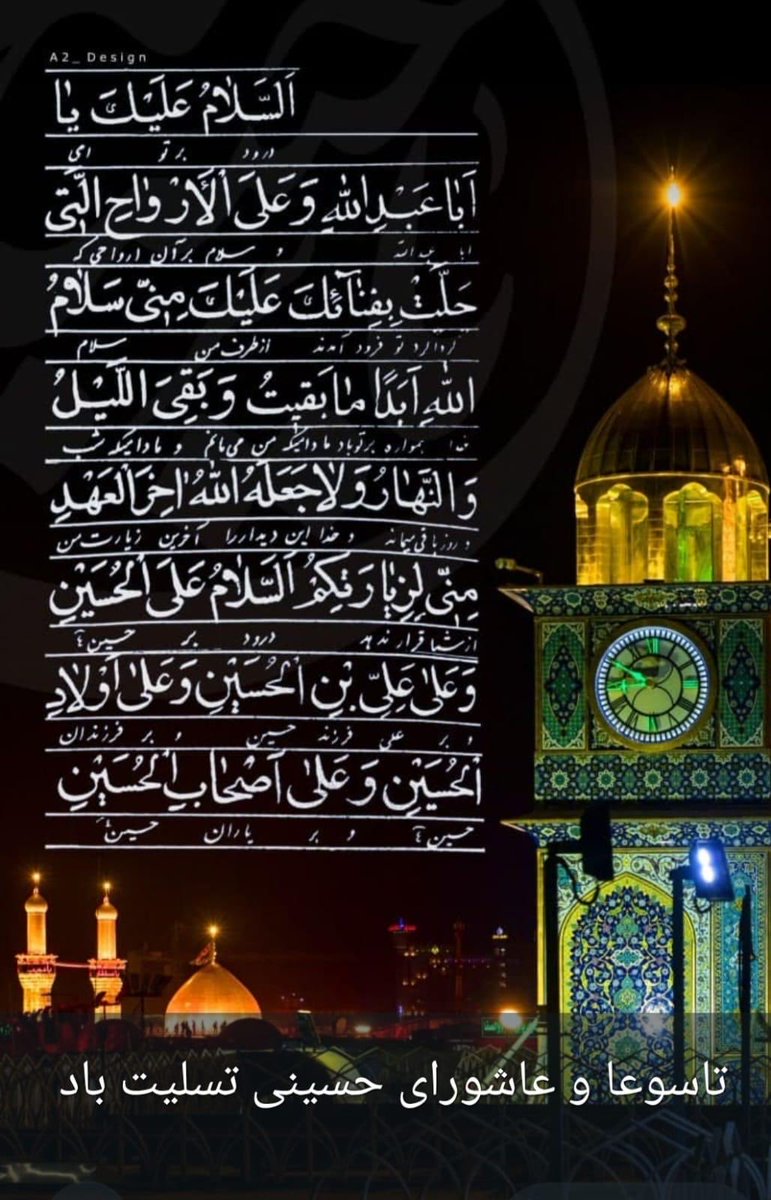 A2_Design
اَلسَّلامُ عَلَیْكَ یا
درود بر تو ای
اَبا عَبْدِاللهِ وَ عَلَی الْاَرْواحِ الَّتی
ابا عبدالله و سلام بر آن ارواحی که
حَلَّتْ بِفِنآئِكَ عَلَیْكَ مِنّی سَلامُ
گرداگرد تو فرود آمدند از طرف من سلام
اللهِ اَبَدًا ما بَقیتُ وَ بَقِیَ اللَّیْلُ
خدا همواره بر تو باد مادامیکه من می‌مانم و مادامیکه شب
وَ النَّهارُ وَ لا جَعَلَهُ اللهُ اخِرَ الْعَهْدِ
و روز باقی میماند و خدا این دیدار را آخرین زیارت من
مِنّی لِزِیارَتِکُمْ اَلسَّلامُ عَلَی الْحُسَیْنِ
از شما قرار ندهد درود بر حسین ع
وَ عَلی عَلِیِّ بْنِ الْحُسَیْنِ وَ عَلی اَوْلادِ
و بر علی فرزند حسین و بر فرزندان
الْحُسَیْنِ وَ عَلی اَصْحابِ الْحُسَیْنِ
حسین ع و بر یاران حسین ع
تاسوعا و عاشورای حسینی تسلیت باد